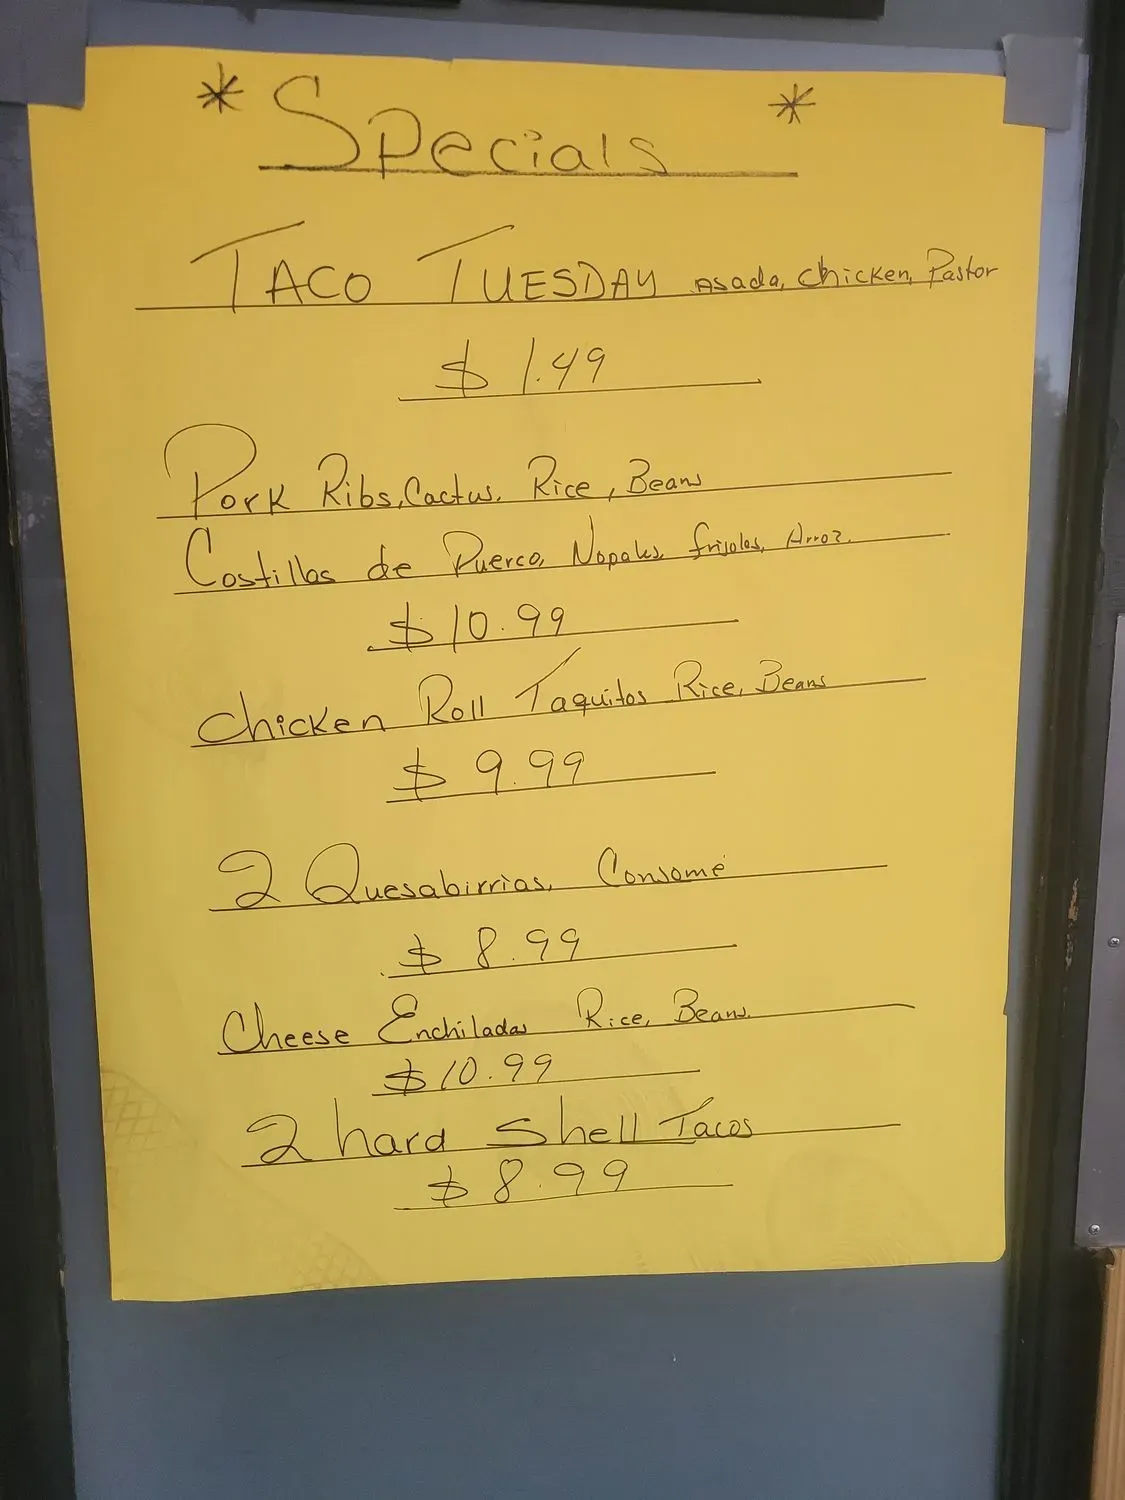 * Specials *
TACO TUESDAY Asada, Chicken, Pastor
$ 1.49
Pork Ribs, Cactus, Rice, Beans
Costillas de Puerco, Nopales, frijoles, Arroz.
$ 10.99
Chicken Roll Taquitos Rice, Beans
$ 9.99
2 Quesabirrias, Consomé
$ 8.99
Cheese Enchiladas Rice, Beans.
$ 10.99
2 hard Shell Tacos
$ 8.99